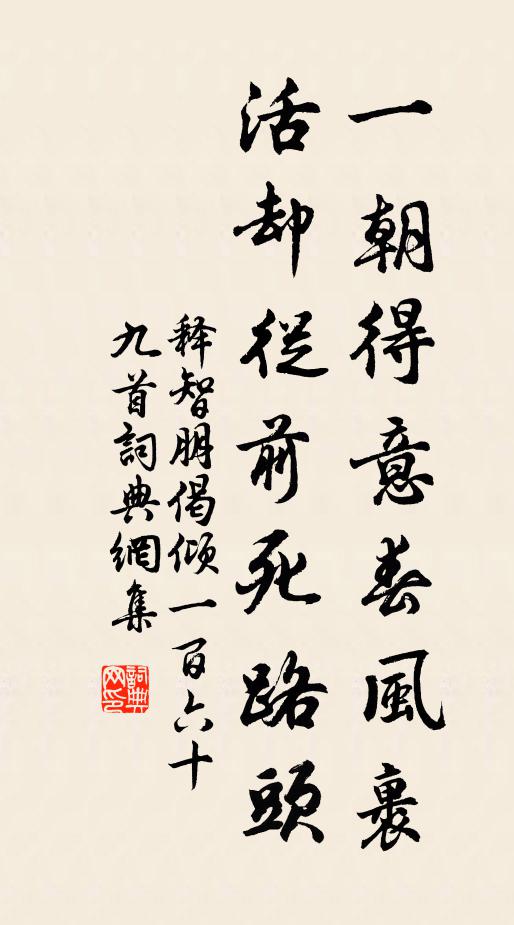 一朝得意春風裏
活却從前死路頭
释智朋偈倾一百六十
九首詞典網集
詞典网印